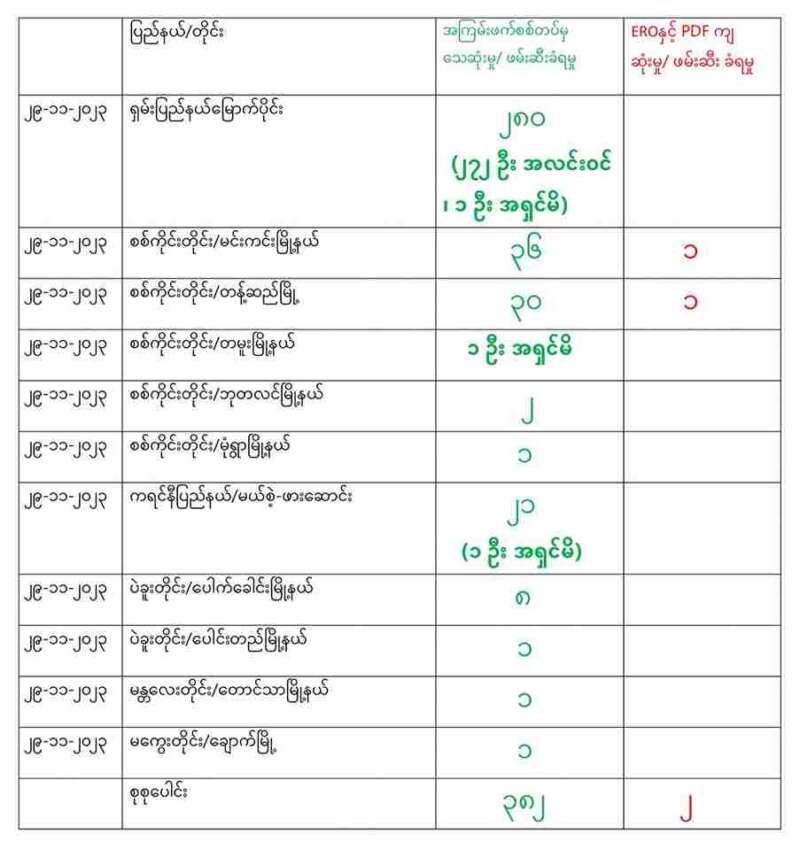 ပြည်နယ်/တိုင်း
အကြမ်းဖက်စစ်တပ်မှ
သေဆုံးမှု/ ဖမ်းဆီးခံရမှု
EROနှင့် PDF ကျ
ဆုံးမှု/ ဖမ်းဆီး ခံရမှု
၂၉-၁၁-၂၀၂၃ ရှမ်းပြည်နယ်မြောက်ပိုင်း ၂၈၀
(၂၇၂ ဦး အလင်းဝင်
၊ ၁ ဦး အရှင်မိ)
၂၉-၁၁-၂၀၂၃ စစ်ကိုင်းတိုင်း/မင်းကင်းမြို့နယ် ၃၆ ၁
၂၉-၁၁-၂၀၂၃ စစ်ကိုင်းတိုင်း/တန့်ဆည်မြို့ ၃၀ ၁
၂၉-၁၁-၂၀၂၃ စစ်ကိုင်းတိုင်း/တမူးမြို့နယ် ၁ ဦး အရှင်မိ
၂၉-၁၁-၂၀၂၃ စစ်ကိုင်းတိုင်း/ဘုတလင်မြို့နယ် ၂
၂၉-၁၁-၂၀၂၃ စစ်ကိုင်းတိုင်း/မုံရွာမြို့နယ် ၁
၂၉-၁၁-၂၀၂၃ ကရင်နီပြည်နယ်/မယ်စဲ့-ဖားဆောင်း ၂၁
(၁ ဦး အရှင်မိ)
၂၉-၁၁-၂၀၂၃ ပဲခူးတိုင်း/ပေါက်ခေါင်းမြို့နယ် ၈
၂၉-၁၁-၂၀၂၃ ပဲခူးတိုင်း/ပေါင်းတည်မြို့နယ် ၁
၂၉-၁၁-၂၀၂၃ မန္တလေးတိုင်း/တောင်သာမြို့နယ် ၁
၂၉-၁၁-၂၀၂၃ မကွေးတိုင်း/ချောက်မြို့ ၁
စုစုပေါင်း ၃၈၂ ၂